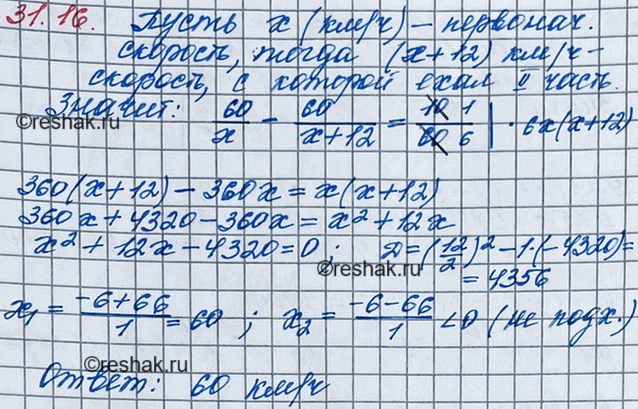 31.16. Пусть x (км/ч) – первонач.
скорость, тогда (x+12) км/ч –
скорость, с которой ехал II часть.
Значит: 60/x - 60/(x+12) = 10/60 1/6 | · 6x(x+12)
©reshak.ru
360(x+12) - 360x = x(x+12)
360x + 4320 - 360x = x² + 12x
x² + 12x - 4320 = 0 ; D = (12/2)² - 1·(-4320) =
= 4356
©reshak.ru
x₁ = (-6+66)/1 = 60 ; x₂ = (-6-66)/1 < 0 (не подх.)
©reshak.ru
Ответ: 60 км/ч